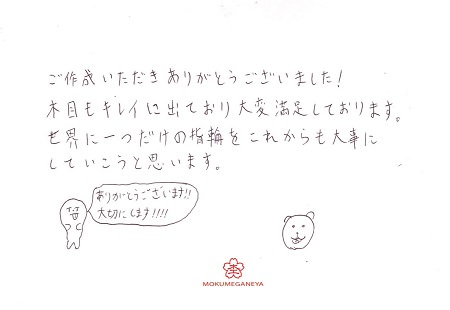 ご作成いただきありがとうございました!
木目もキレイに出ており大変満足しております。
世界に一つだけの指輪をこれからも大事に
していこうと思います。
ありがとうございます!!
大切にします!!!!
MOKUMEGANEYA